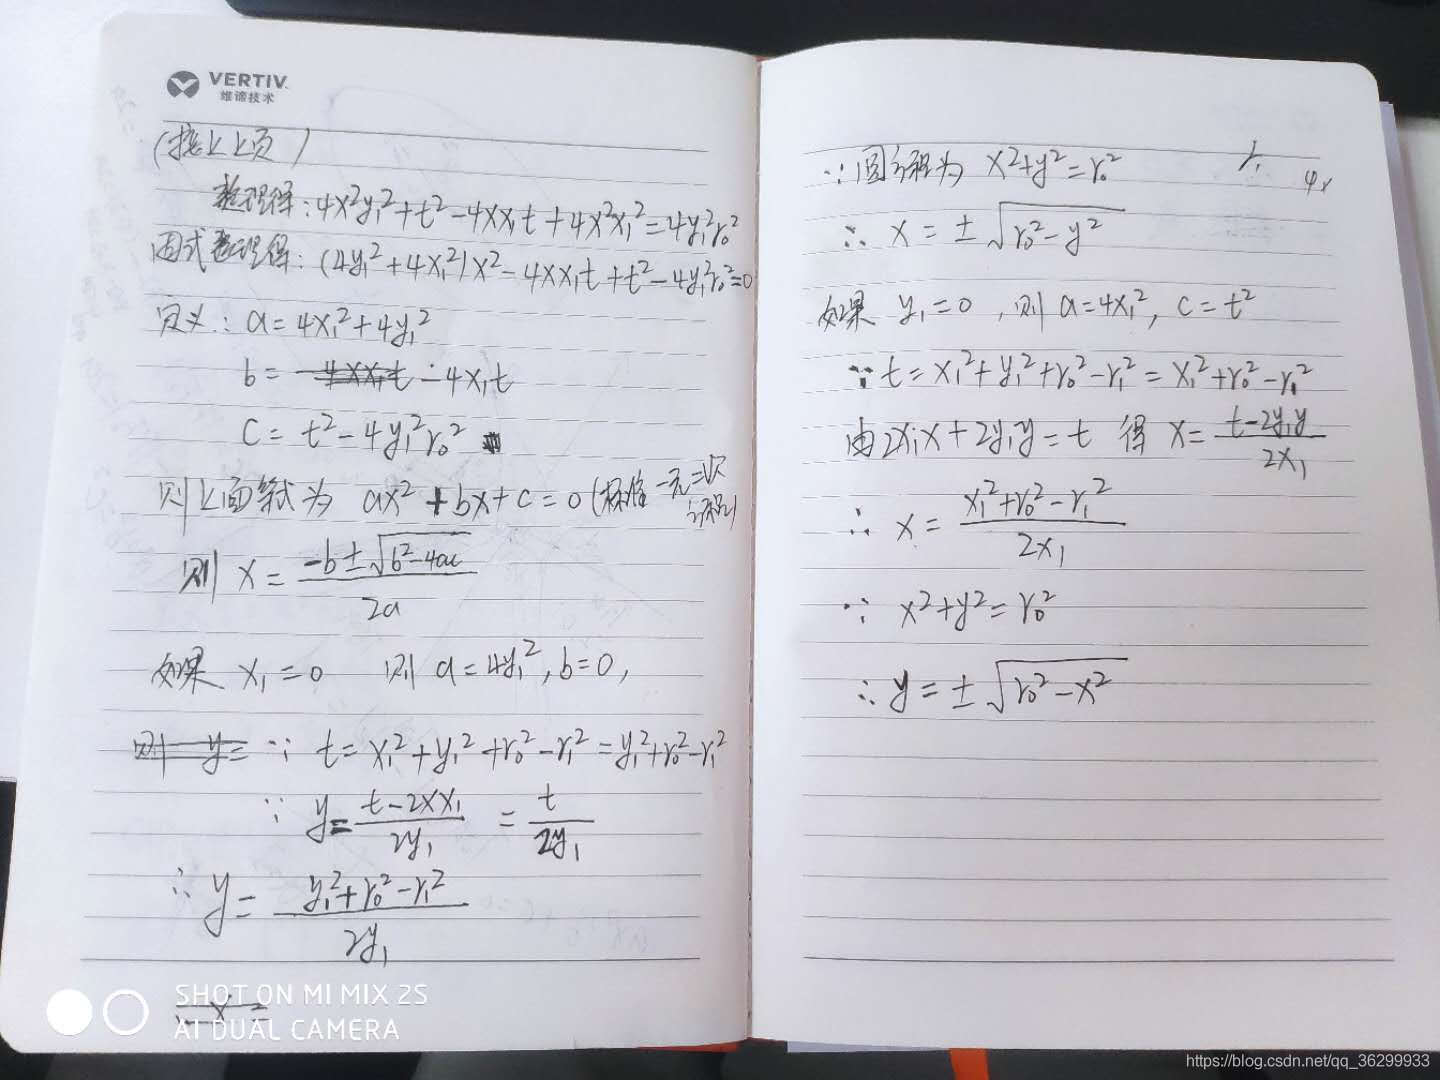 VERTIV.
维谛技术
(接上上页)
整理得: 4x²y₁²+t²-4xx₁t+4x²x₁²=4y₁²r₀²
因式整理得: (4y₁²+4x₁²)x²-4xx₁t+t²-4y₁²r₀²=0
定义: a=4x₁²+4y₁²
b= -4x₁t
c= t²-4y₁²r₀²
则上面等式为 ax²+bx+c=0 (标准一元二次方程)
则 x = (-b±√(b²-4ac))/(2a)
如果 x₁=0 则 a=4y₁², b=0,
则 y= ∵ t= x₁²+y₁²+r₀²-r₁²=y₁²+r₀²-r₁²
∵ y= (t-2xx₁)/(2y₁) = t/(2y₁)
∴ y= (y₁²+r₀²-r₁²)/(2y₁)
∴ x =
SHOT ON MI MIX 2S
AI DUAL CAMERA
∵圆方程为 x²+y²=r₀²
4x
∴ x = ±√(r₀²-y²)
如果 y₁=0, 则 a=4x₁², c=t²
∵ t= x₁²+y₁²+r₀²-r₁²= x₁²+r₀²-r₁²
由2x₁x+2y₁y=t 得 x= (t-2y₁y)/(2x₁)
∴ x= (x₁²+r₀²-r₁²)/(2x₁)
∵ x²+y²=r₀²
∴ y=±√(r₀²-x²)
https://blog.csdn.net/qq_36299933